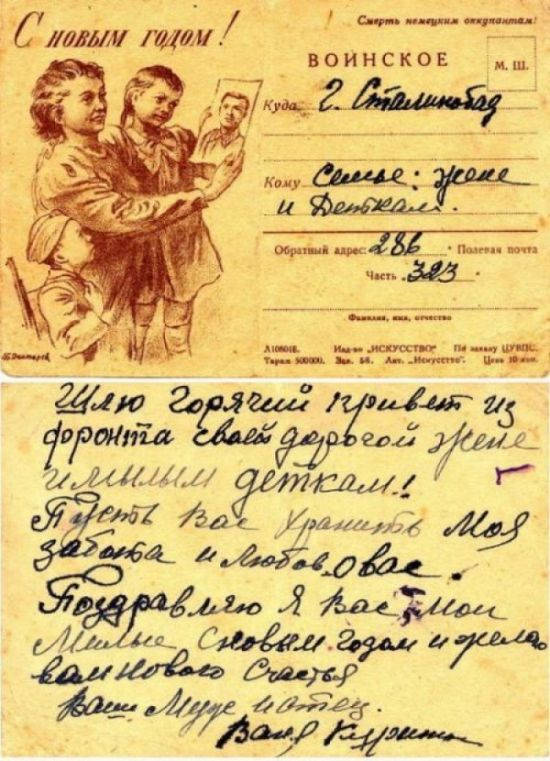 С НОВЫМ ГОДОМ!
Смерть немецким оккупантам!
ВОИНСКОЕ
М. Ш.
Куда г. Сталинабад
Кому семье: жене
и Деткам.
Обратный адрес: 286 Полевая почта
Часть 323
Фамилия, имя, отчество
Изд-во „ИСКУССТВО" По заказу ЦУВПС.
Тираж 500000. Зак. 58. Лит. „Искусство". Цена 10 коп.
Шлю горячий привет из
фронта своей дорогой жене
и милым деткам!
Пусть Вас хранить Моя
забота и любов о вас.
Поздравляю я Вас мои
Милые с новым годом и желаю
вам нового счастья
Ваш Муж и отец.
Ваня